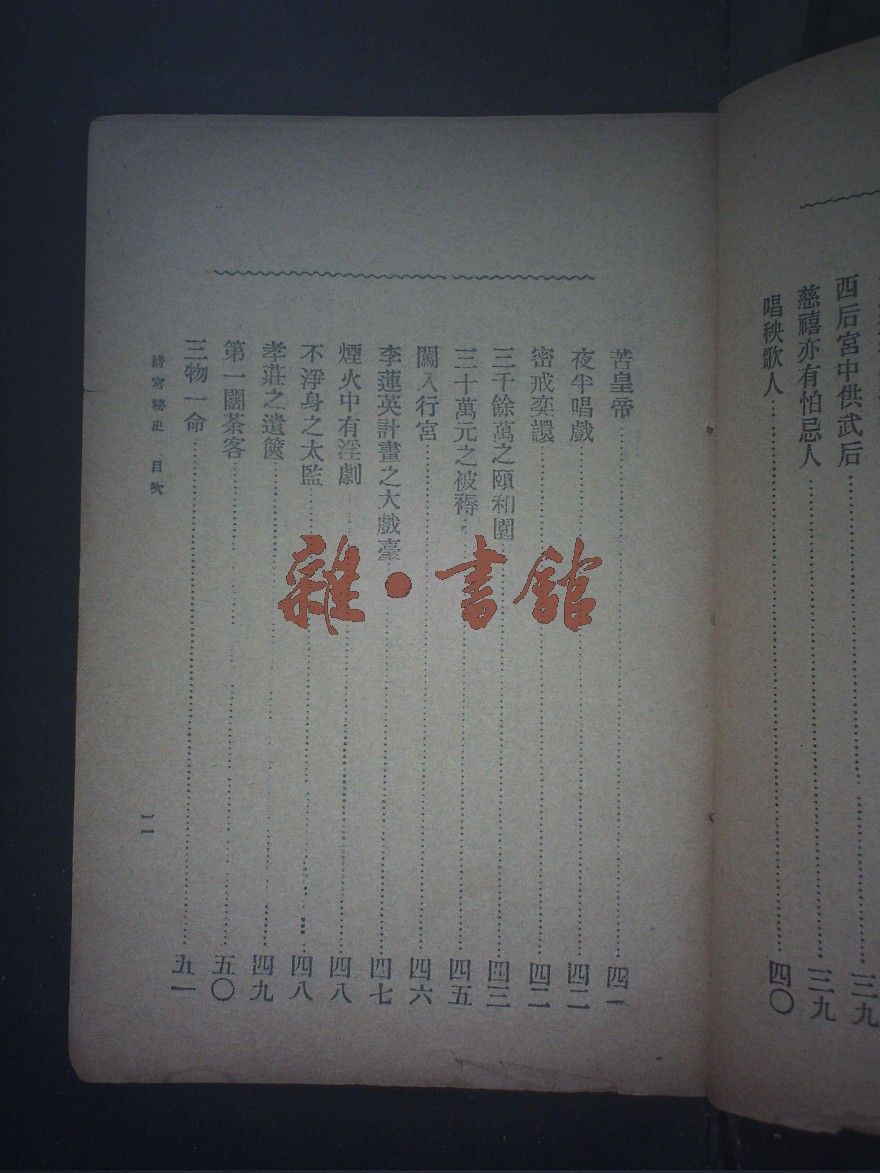 西后宮中供武后……三九
慈禧亦有怕忌人……三九
唱秧歌人……四〇
苦皇帝……四一
夜半唱戲……四二
密戒奕譞……四二
三千餘萬之頤和園……四三
三十萬元之被褥……四五
闖入行宮……四六
李蓮英計畫之大戲臺……四七
煙火中有淫劇……四八
不淨身之太監……四八
孝莊之遺篋……四九
第一闊茶客……五〇
三物一命……五一
清宮秘史 目次
二
雜·書館